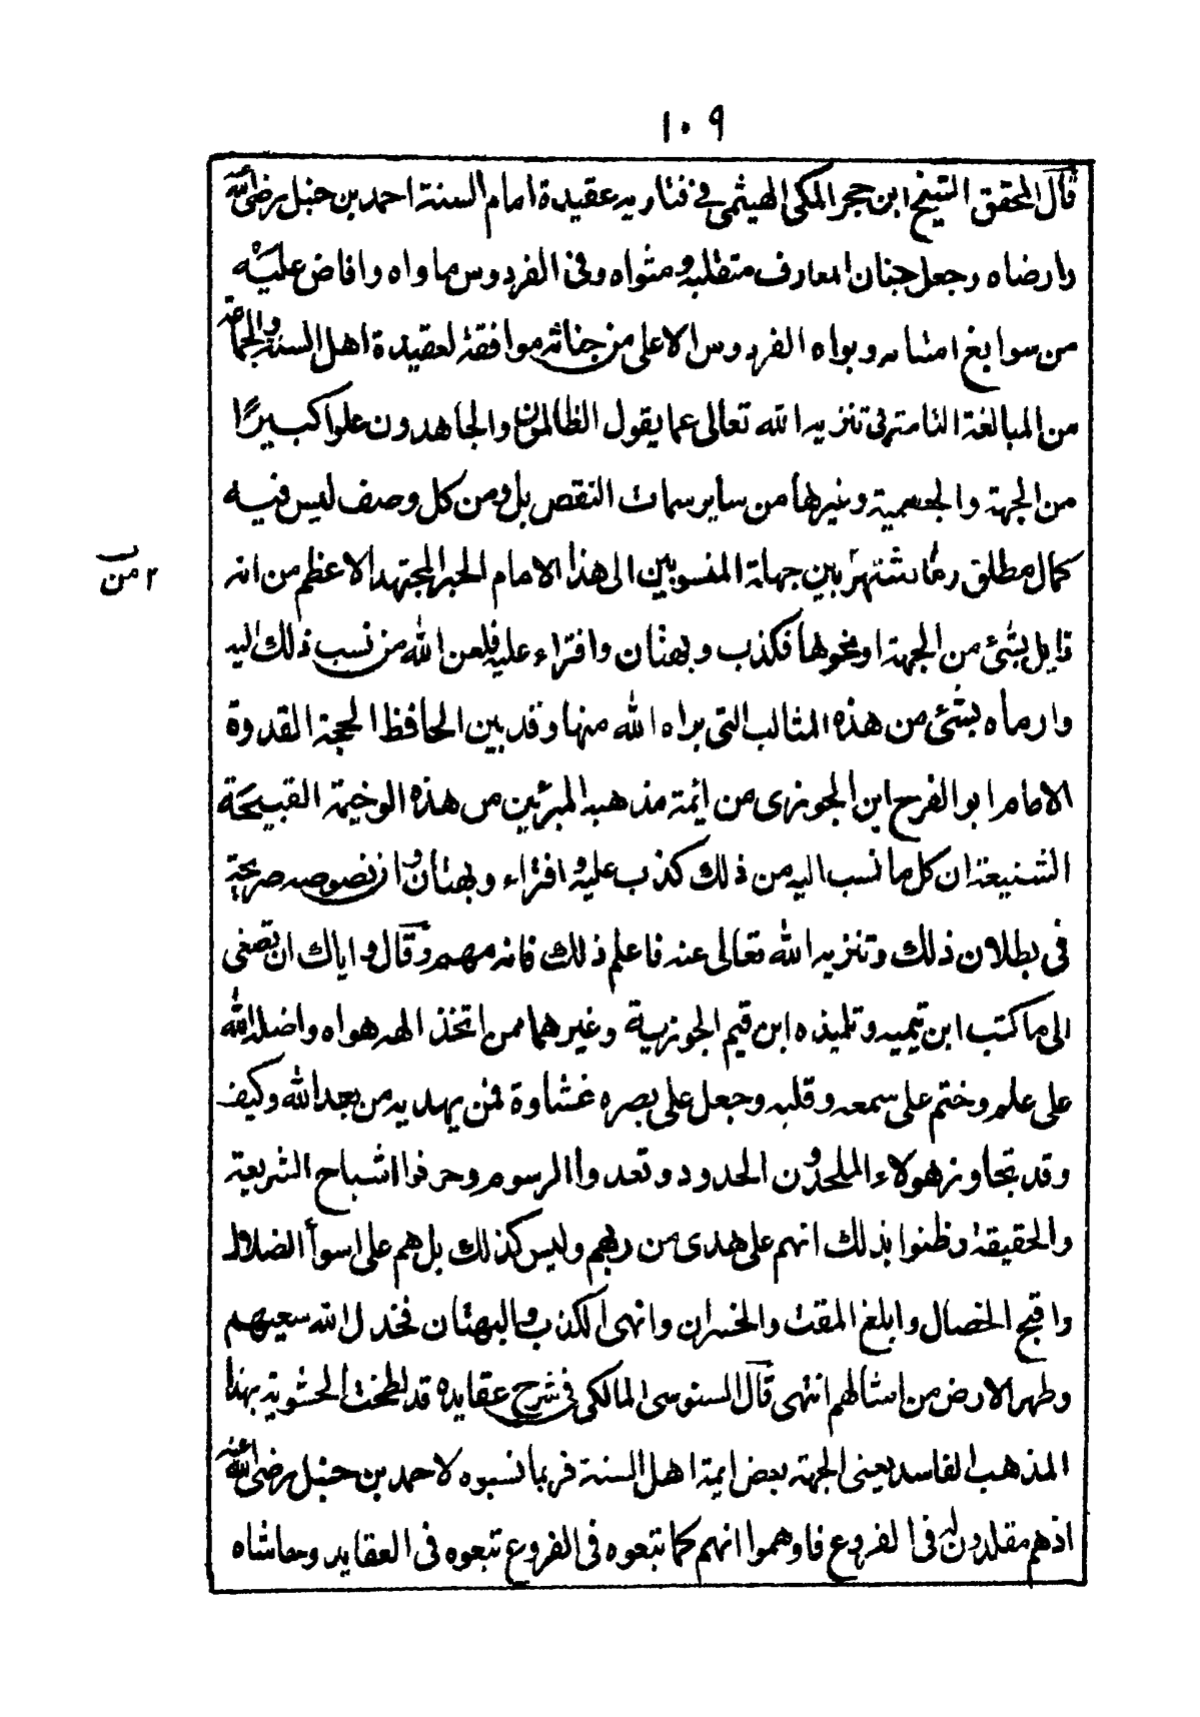 ١٠٩
قال المحقق الشيخ ابن حجر المكى الهيثمى فى فتاويه عقيدة امام السنة احمد بن حنبل رضى الله
وارضاه وجعل جنان المعارف متقلبه ومثواه وفى الفردوس ماواه وافاض عليه
من سوابغ امتنانه وبواه الفردوس الاعلى من جنانه موافقة لعقيدة اهل السنة والجماعة
من المبالغة التامة فى تنزيه الله تعالى عما يقول الظالمون والجاهدون علوا كبيرًا
من الجهة والجسمية وغيرها من سائر سمات النقص بل ومن كل وصف ليس فيه
كمال مطلق وما اشتهر بين جهلة المنسوبين الى هذا الامام الحبر المجتهد الاعظم من انه
قايل بشئ من الجهة او نحوها فكذب وبهتان وافتراء عليه فلعن الله من نسب ذلك اليه
وارماه بشئ من هذه المثالب التى براه الله منها وقد بين الحافظ الحجة القدوة
الامام ابو الفرج ابن الجوزى من ائمة مذهبه المبرئين من هذه الوخيمة القبيحة
الشنيعة ان كل ما نسب اليه من ذلك كذب عليه وافتراء وبهتان وان نصوصه صريحة
فى بطلان ذلك وتنزيه الله تعالى عنه فاعلم ذلك فانه مهم وقال واياك ان تصغى
الى ما كتب ابن تيميه وتلميذه ابن قيم الجوزية وغيرهما ممن اتخذ الهه هواه واضله الله
على علم وختم على سمعه وقلبه وجعل على بصره غشاوة فمن يهديه من بعد الله وكيف
وقد تجاوز هولاء الملحدون الحدود وتعدوا الرسوم وحرفوا اشباح الشريعة
والحقيقة وظنوا بذلك انهم على هدى من ربهم وليس كذلك بل هم على اسوأ الضلال
واقبح الخصال وابلغ المقت والخسران وانهى الكذب والبهتان فخذل الله سعيهم
وطهر الارض من امثالهم انتهى قال السنوسى المالكى فى شرح عقايده قد لطخت الحشوية بهذا
المذهب الفاسد يعنى الجهة بعض ايمة اهل السنة فربما نسبوه لاحمد بن حنبل رضى الله عنه
اذ هم مقلدون له فى الفروع فاوهموا انهم كما تبعوه فى الفروع تبعوه فى العقايد وحاشاه
٢ من